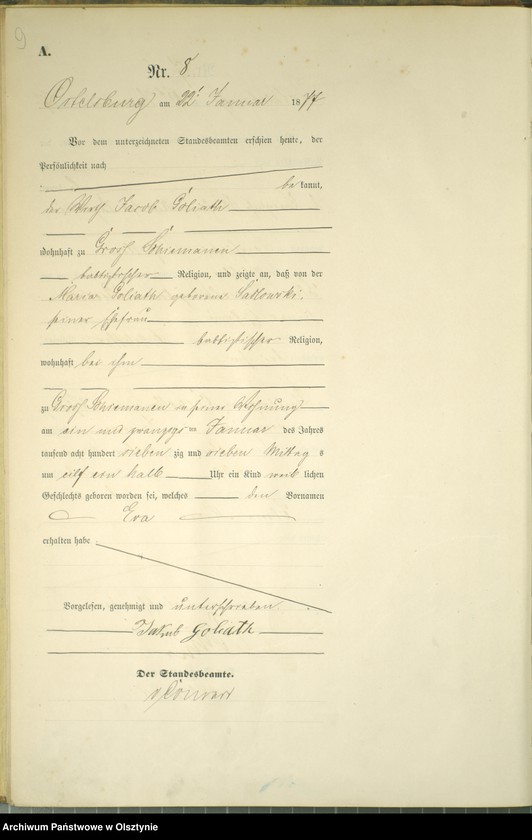 9
A.
Nr. 8
Ortelsburg am 22t Januar 1877
Vor dem unterzeichneten Standesbeamten erschien heute, der
Persönlichkeit nach
bekannt,
der Jacob Goliath
wohnhaft zu Groß Schiemanen
Religion, und zeigte an, daß von der
Maria Goliath geborene Satkowski,
seiner Ehefrau
Religion,
wohnhaft bei ihm
zu Groß Schiemanen in seiner Wohnung
am ein und zwanzigsten Januar des Jahres
tausend acht hundert siebenzig und sieben Mittags
um elf ein halb Uhr ein Kind weiblichen
Geschlechts geboren worden sei, welches den Vornamen
Eva
erhalten habe
Vorgelesen, genehmigt und unterschrieben
Jakub Goliath
Der Standesbeamte.
Archiwum Państwowe w Olsztynie